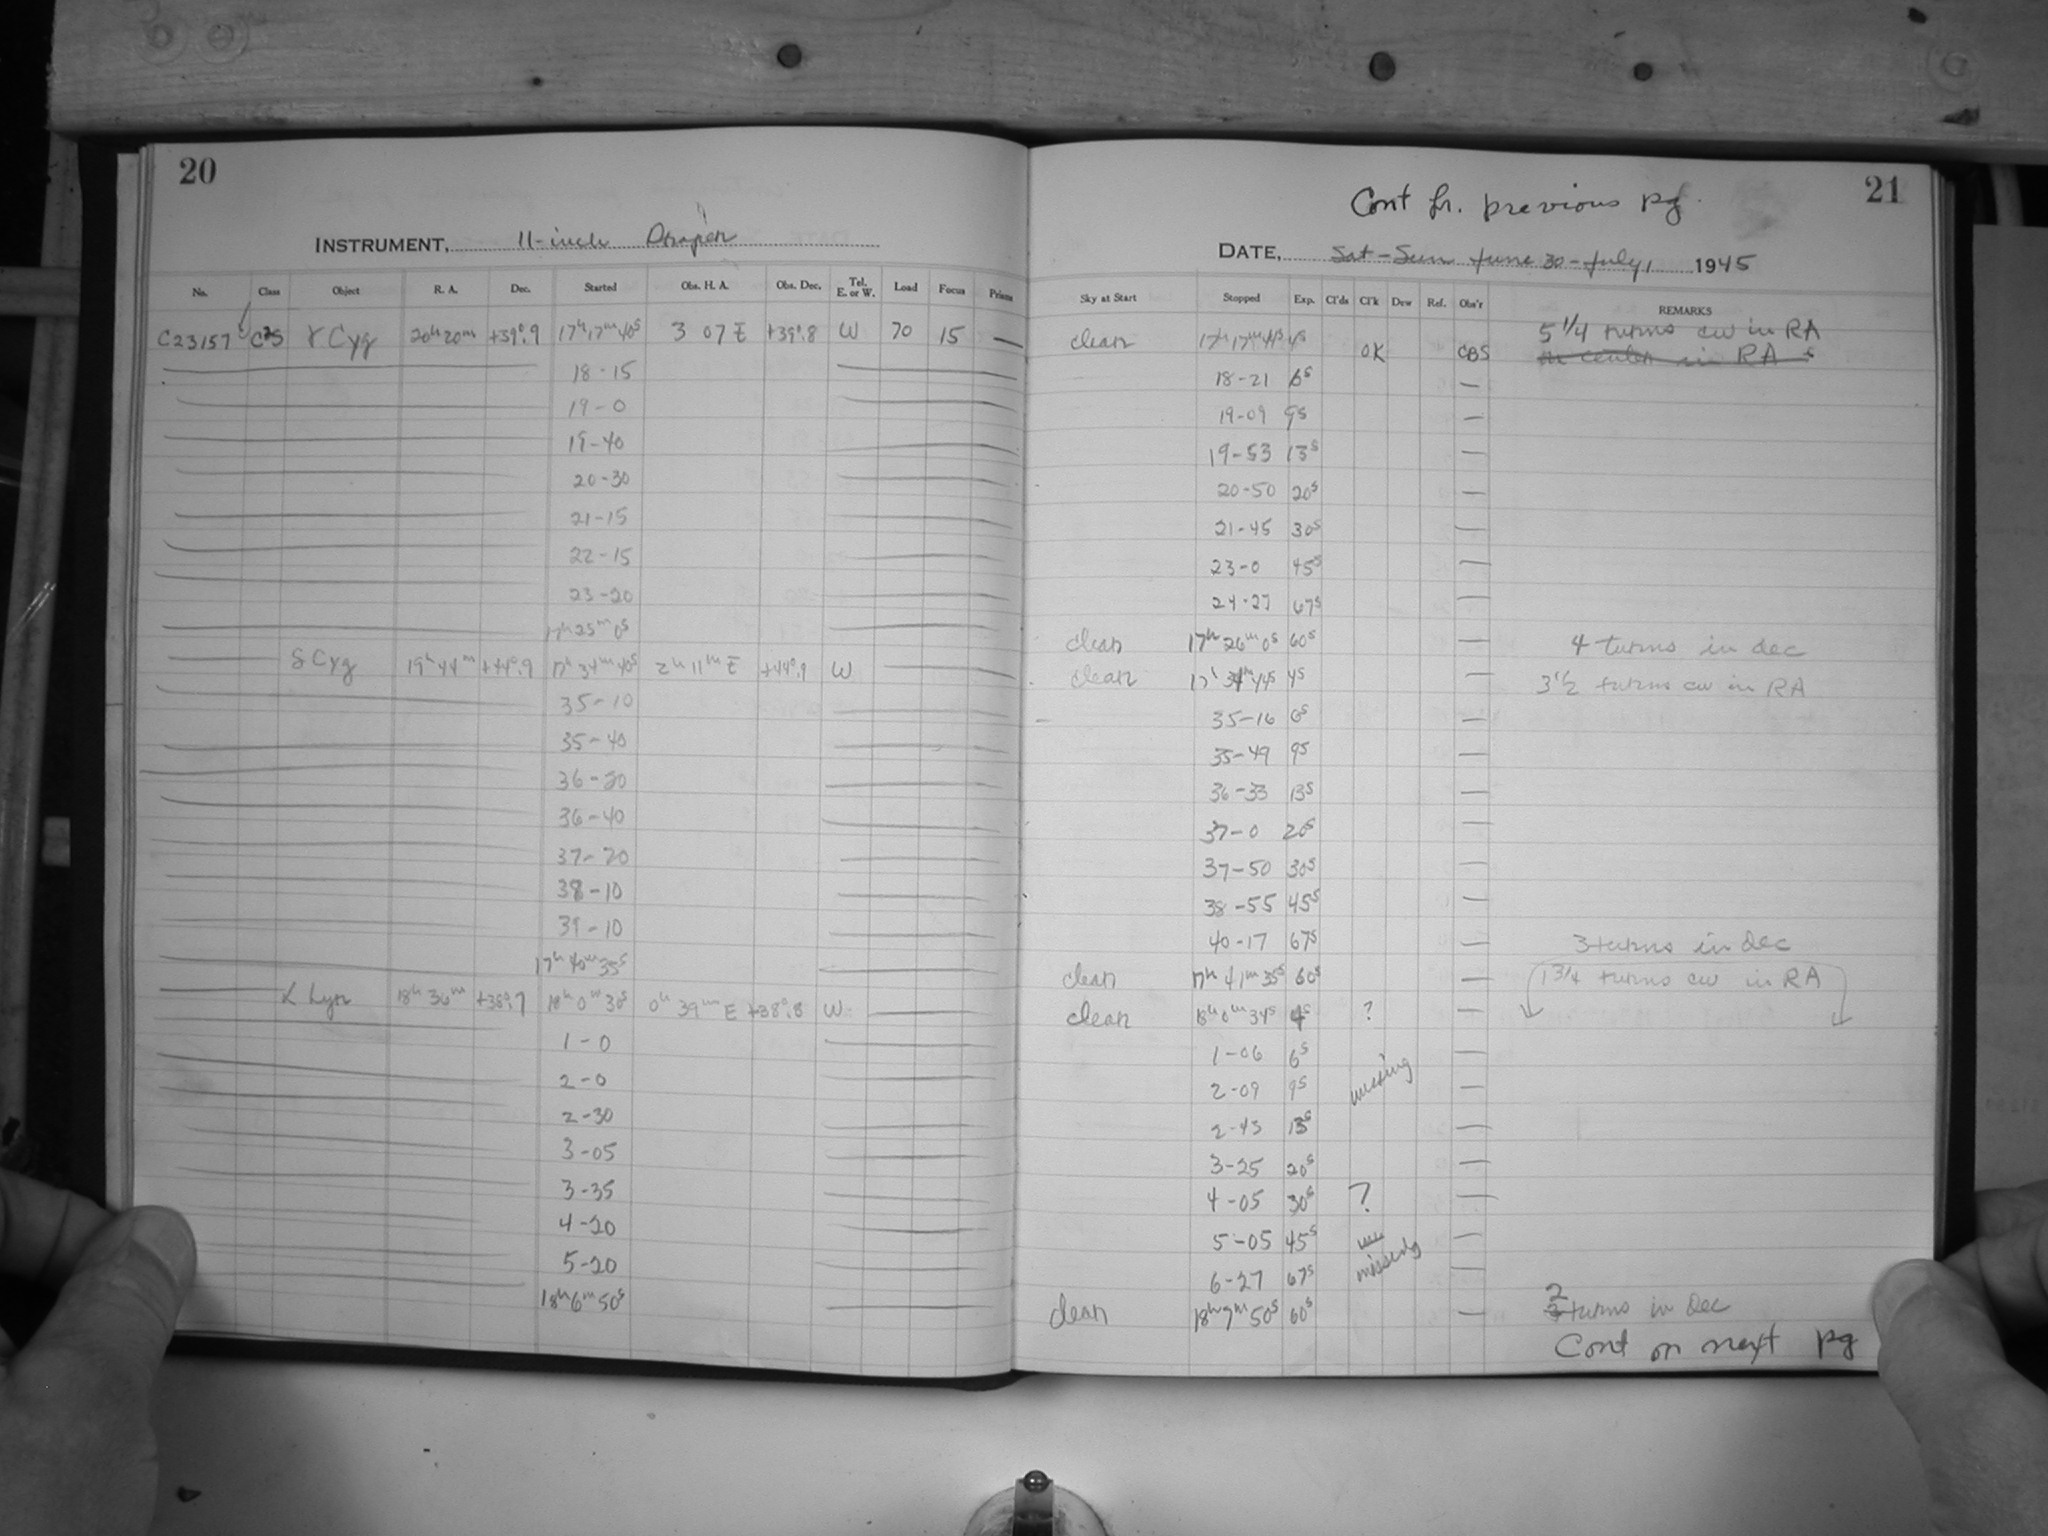 20
INSTRUMENT, 11-inch Draper
No. Class Object R. A. Dec. Started Obs. H. A. Obs. Dec. Tel. E. or W. Load Focus Prisms
C23157 C2S γ Cyg 20h 20m +39°.9 17h 17m 40s 3 07 E +39°.8 W 70 15 —
18-15
19-0
19-40
20-30
21-15
22-15
23-20
17h 25m 0s
δ Cyg 19h 44m +44°.9 17h 34m 40s 2h 11m E +44°.9 W
35-10
35-40
36-20
36-40
37-20
38-10
39-10
17h 40m 35s
α Lyr 18h 36m +38°.7 18h 0m 30s 0h 39m E +38°.8 W
1-0
2-0
2-30
3-05
3-35
4-20
5-20
18h 6m 50s
21
Cont fr. previous pg.
DATE, Sat-Sun June 30-July 1 1945
Sky at Start Stopped Exp. Cl'ds Cl'k Dew Ref. Obs'r REMARKS
clear 17h 17m 44s 4s OK CBS 5 1/4 turns cw in RA
in RA
18-21 6s —
19-09 9s —
19-53 13s —
20-50 20s —
21-45 30s —
23-0 45s —
24-27 67s —
clear 17h 26m 0s 60s — 4 turns in dec
clear 17h 34m 44s 4s — 3 1/2 turns cw in RA
35-16 6s —
35-49 9s —
36-33 13s —
37-0 20s —
37-50 30s —
38-55 45s —
40-17 67s — 3 turns in dec
clear 17h 41m 35s 60s — 1 3/4 turns cw in RA
clear 18h 0m 34s 4s ? —
1-06 6s — missing
2-09 9s —
2-43 13s —
3-25 20s —
4-05 30s ? —
5-05 45s —
6-27 67s missing —
clear 18h 7m 50s 60s — 2 turns in dec
Cont on next pg